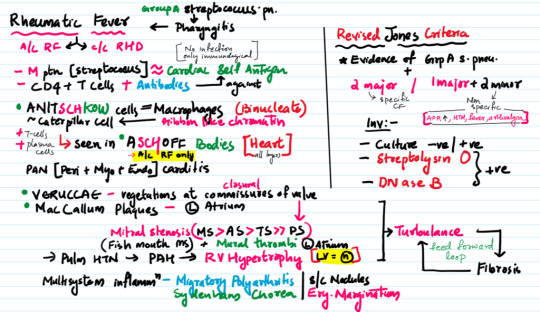 Rheumatic Fever
Group A streptococcus. pn.
Pharyngitis
A/c RF ⇌ c/c RHD
[No infection only immunological]
- M ptn [streptococcus] ≈ Cardiac Self Antigen
- CD4+ T Cells + Antibodies → against
• ANITSCHKOW cells = Macrophages (Binucleate)
~ Caterpillar cell ← Ribbon like chromatin
+ T-cells
+ plasma cells
↳ seen in • ASCHOFF Bodies [Heart all layers]
→ A/c RF only
PAN [Peri + Myo + Endo] carditis
• VERUCCAE - vegetations at closural commissures of valve
• MacCallum Plaques - Ⓛ Atrium
Mitral stenosis (MS > AS > TS >> PS)
(Fish mouth MS) + Mural thrombi Ⓛ Atrium
→ Pulm HTN → PAH → RV Hypertrophy [LV = ⓝ]
Multisystem inflammⁿ - Migratory Polyarthritis | S/C Nodules
Sydenhams Chorea | Ery. Marginatum
Revised Jones Criteria
* Evidence of Grp A S. pneu.
+
2 major / 1 major + 2 minor
specific CF
Non specific
[APR ↑, HTM, fever, arthralgia]
Inv:-
- Culture -ve/+ve
- Streptolysin O
- DNase B
+ve
→ Turbulance
feed forward loop
Fibrosis